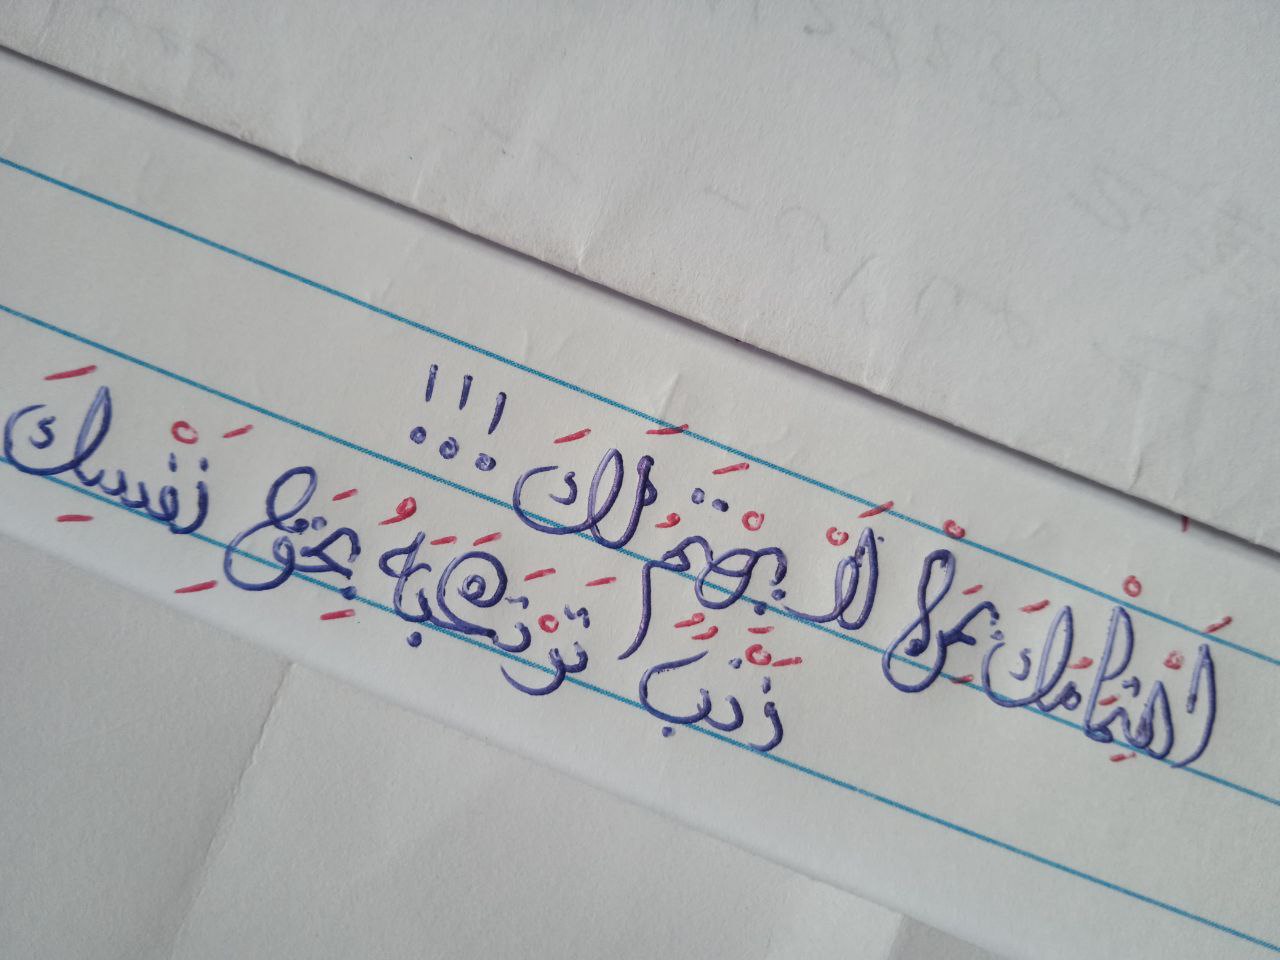 اَهْتِمَاْمَكَ بِمَنْ لَاْ يَهْتَمُ لَكَ !!!
ذَنْبٌ تَرْتَكَبَهُ بِحَقِ نَفْسِكَ